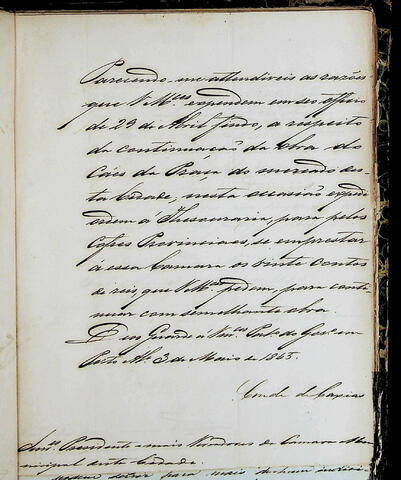 Parecendo-me attendiveis as razões
que V. M.ces expendem em seu officio
de 29 de Abril findo, a respeito
da continuação da obra do
Cáes da Praça do mercado des-
ta Cidade, nesta occasião expéço
ordem á Thesouraria, para pelos
Cofres Provinciaes, se emprestar
á essa Camara os vinte contos
de reis, que V. M.ces pedem, para conti-
nuar com semelhante obra.
Deos Guarde á Vm.ces Pal.o do Gov.o em
Porto Al. 3 de Maio e 1845.
Conde de Caxias
Snr.es Presidente e mais Vereadores da Camara Mu-
nicipal desta Cidade.
para mais